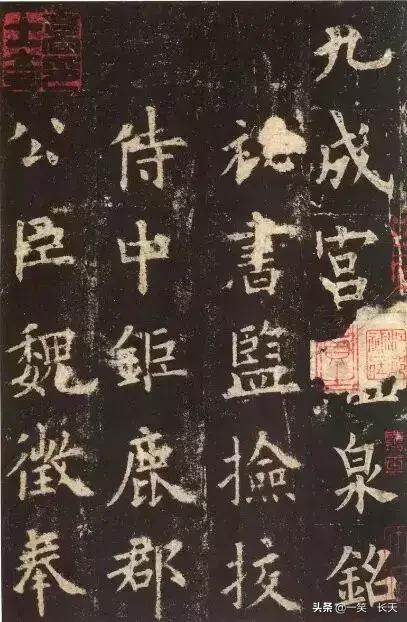 九成宮 泉銘
祕書監撿挍
侍中鉅鹿郡
公臣魏徵奉
头条@一笑 长天